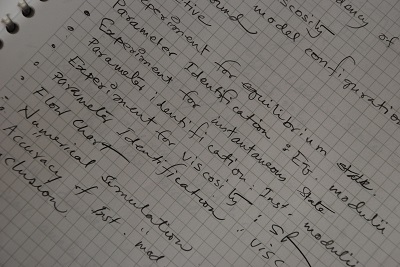 dency of
scosity
model configuration
ound
ctive
Experiment for equilibrium state
Parameter Identification : Eq. moduli
Experiment for instantaneous State
parameter identification : Inst. moduli
Experiment for viscosity : SR
parameter Identification : VISC
Flow chart
Numerical simulation
Accuracy of Inst. mod
clusion